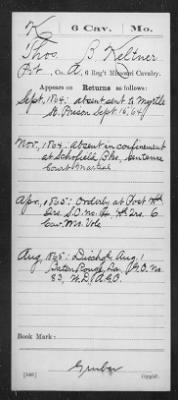 K 6 Cav. Mo.
Thos. B Keltner
Pvt, Co. A, 6 Reg't Missouri Cavalry.
Appears on Returns as follows:
Sept, 1864: absent sent to Myrtle
St. Prison Sept. 16, 64
Nov, 1864. absent in confinement
at Schofield Bks, sentence
Court Martial
Apr, 1865: Orderly at
Cav.
Aug 1865: Disch'd Aug. 1
Baton Rouge La, G.O. No.
83, W.D. A.G.O.
Book Mark:
Gruber
Copyist.